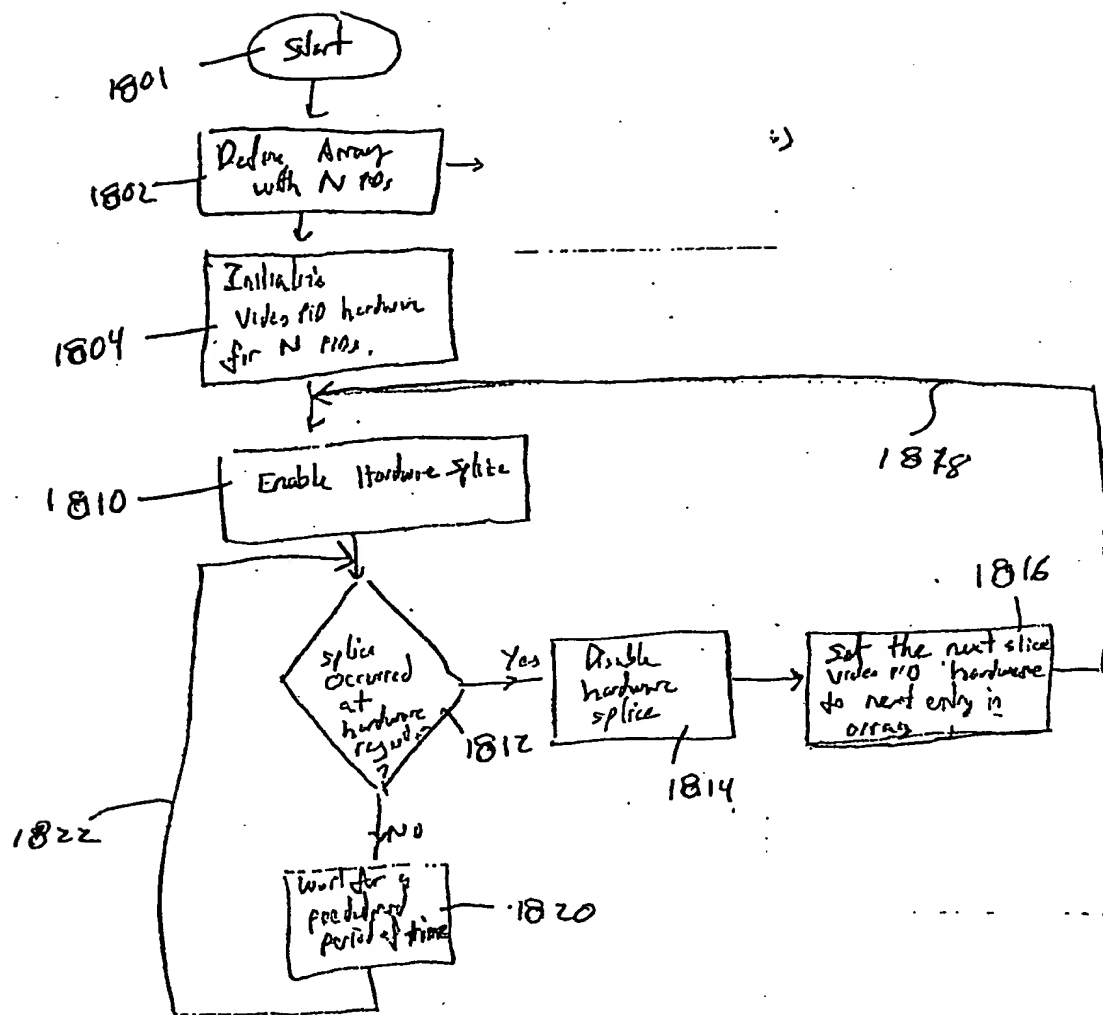 Start
1801
Define Array
with N PIDs
1802
Initialize
Video PID hardware
for N PIDs.
1804
1878
Enable Hardware Splice
1810
1816
splice
occurred
at
hardware
?
Yes
1812
Disable
hardware
splice
1814
Set the next slice
video PID hardware
to next entry in
array
1822
NO
wait for a
period of time
1820